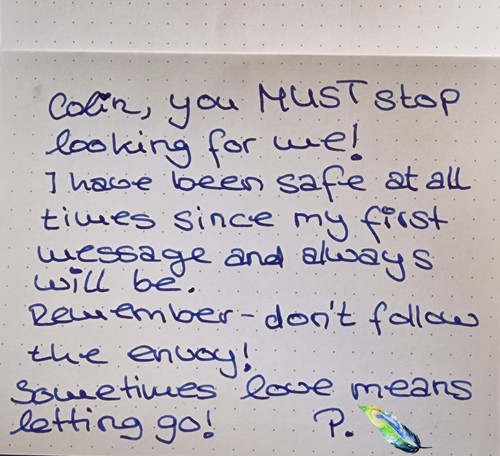 Colin, you MUST stop
looking for me!
I have been safe at all
times since my first
message and always
will be.
Remember - don't follow
the envoy!
Sometimes love means
letting go! P.